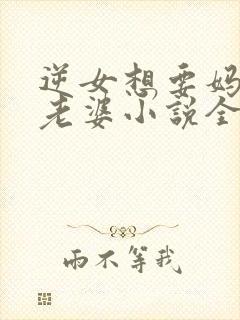 逆女想要妈
老婆小說全
雨不等我